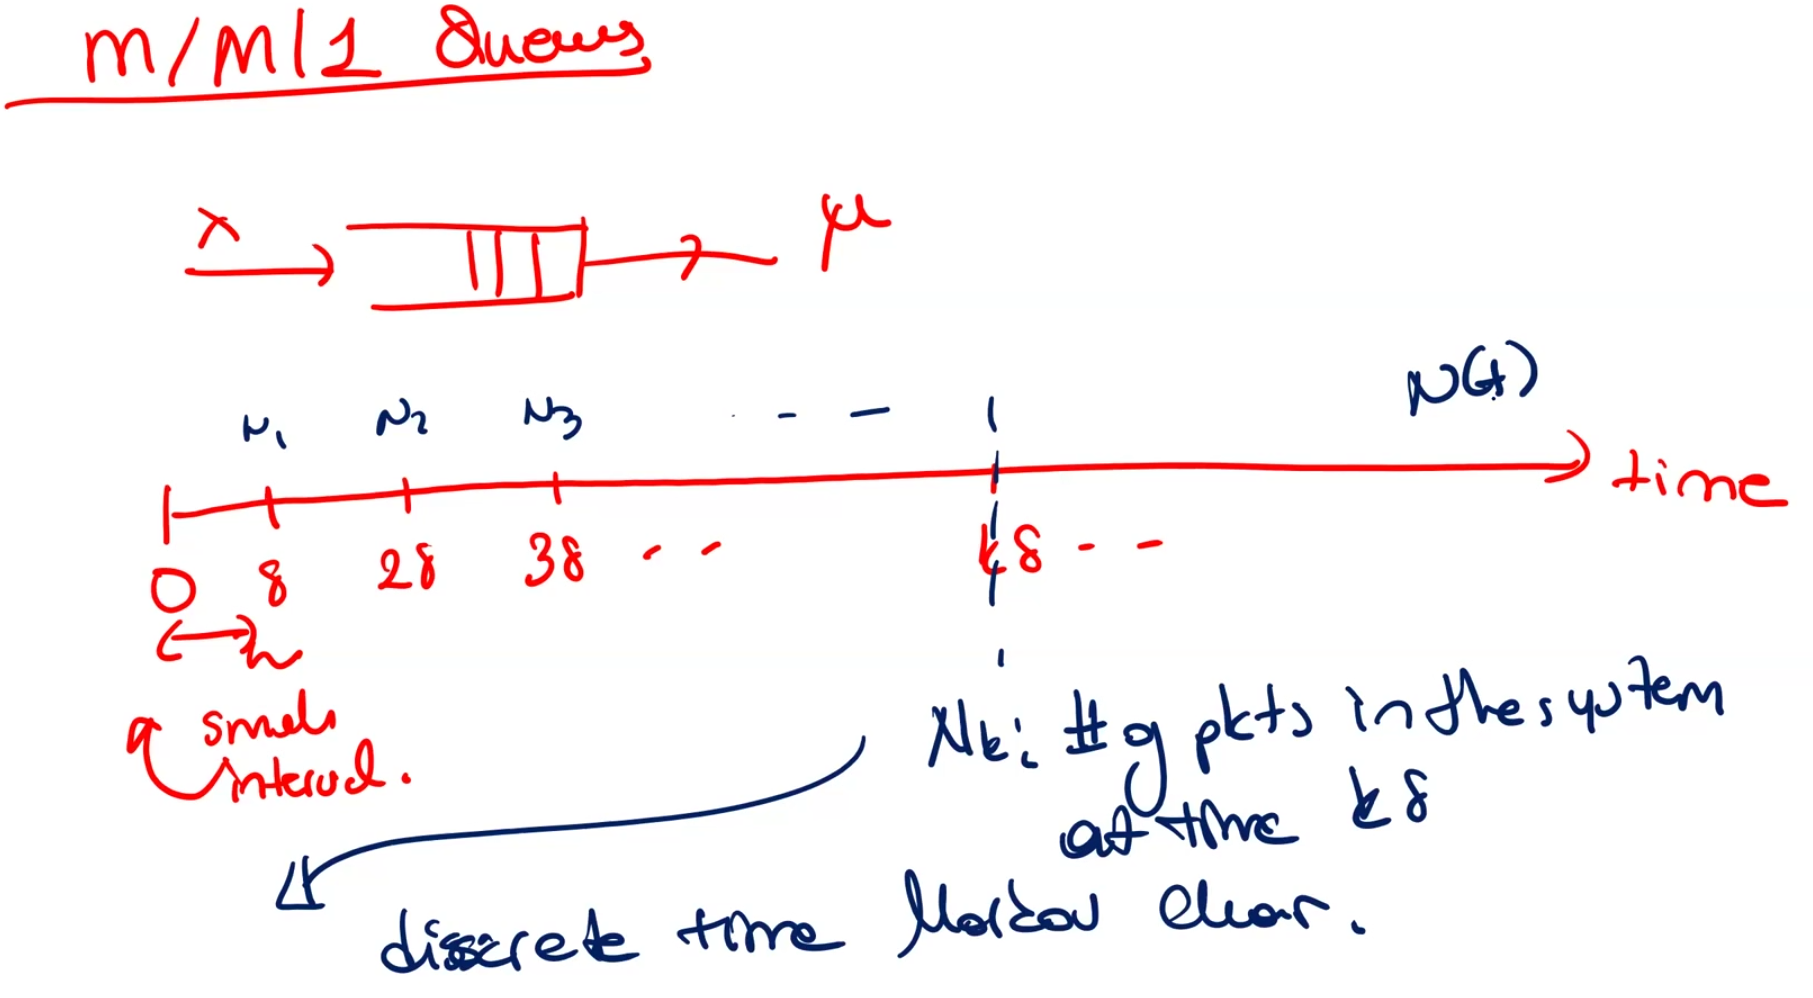 M/M/1 Queues
λ
μ
N(t)
N1 N2 N3 - -
time
0 δ 2δ 3δ - - kδ - -
small
interval.
Nk: # of pkts in the system
at time kδ
discrete time Markov Chain.